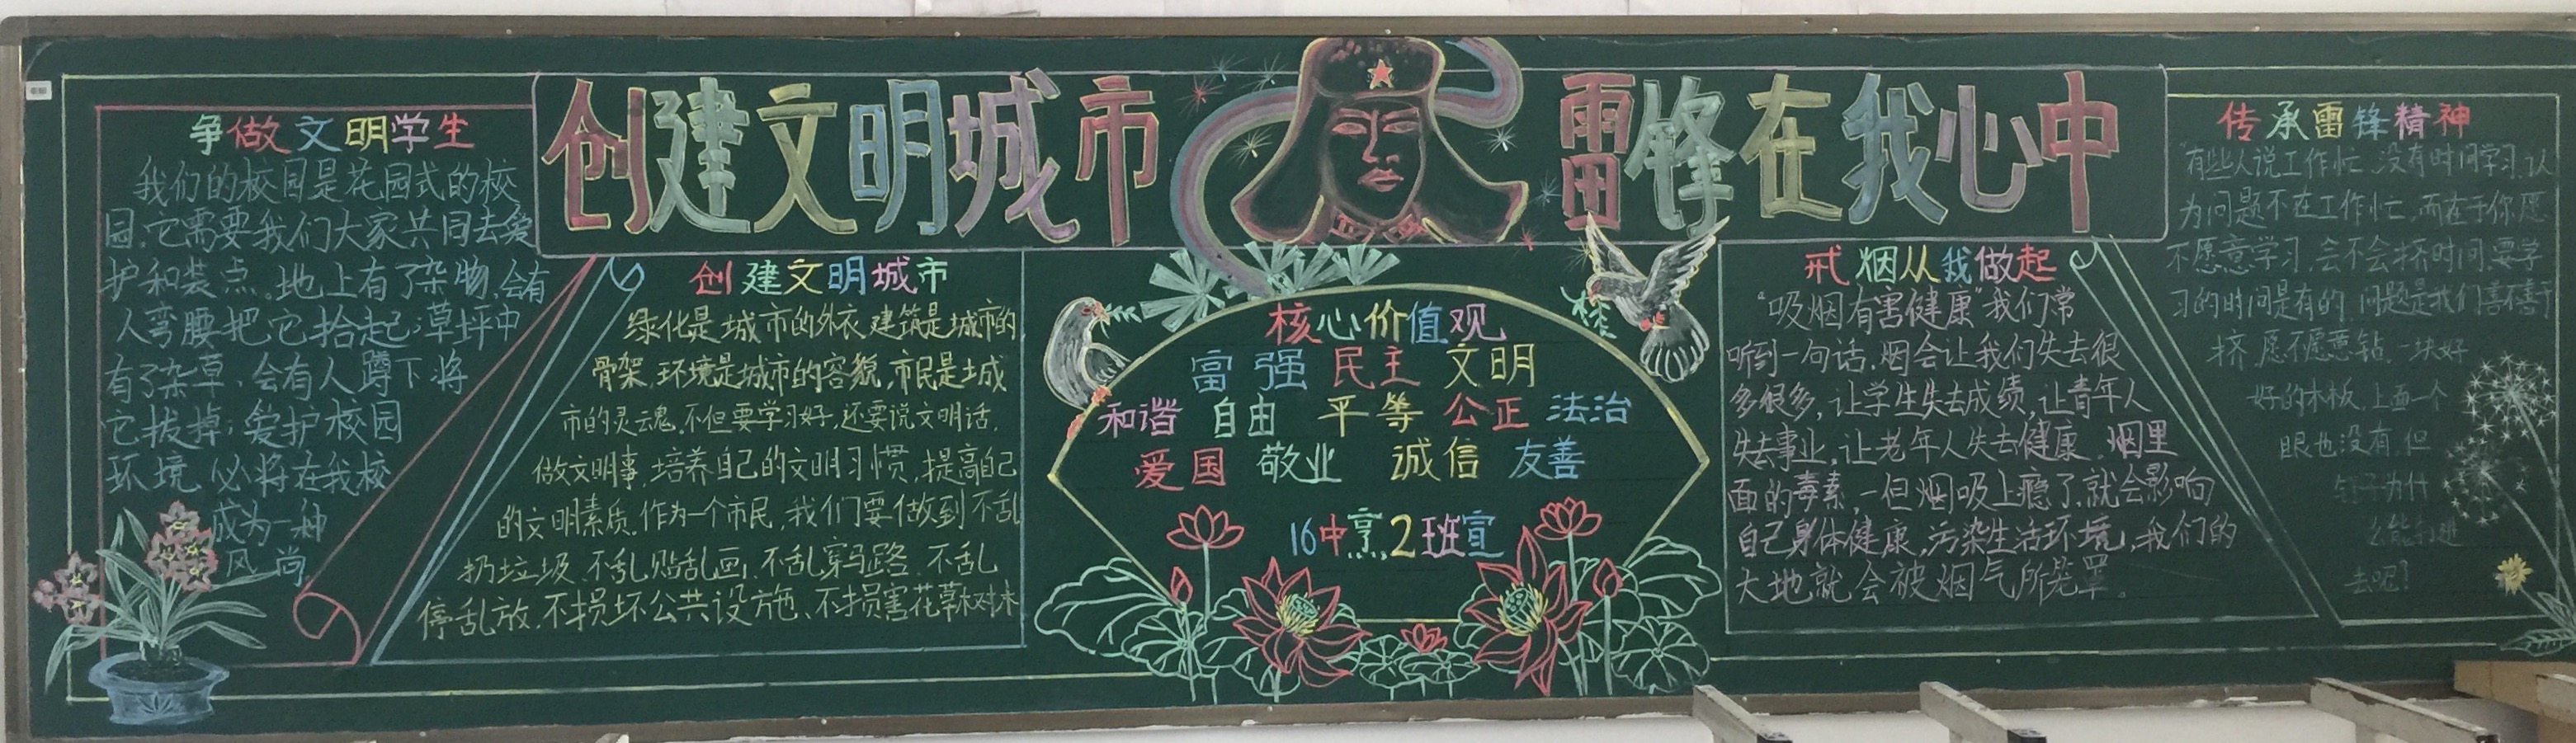 创建文明城市
雷锋在我心中
争做文明学生
我们的校园是花园式的校
园.它需要我们大家共同去爱
护和装点.地上有了杂物,会有
人弯腰把它拾起;草坪中
有了杂草,会有人蹲下将
它拔掉;爱护校园
环境,必将在我校
成为一种
风尚
创建文明城市
绿化是城市的外衣,建筑是城市的
骨架,环境是城市的容貌,市民是城
市的灵魂.不但要学习好,还要说文明话,
做文明事,培养自己的文明习惯,提高自己
的文明素质.作为一个市民,我们要做到不乱
扔垃圾、不乱贴乱画、不乱穿马路、不乱
停乱放、不损坏公共设施、不损害花草树木
核心价值观
富强 民主 文明
和谐 自由 平等 公正 法治
爱国 敬业 诚信 友善
16中烹.2班宣
戒烟从我做起
“吸烟有害健康”我们常
听到一句话.烟会让我们失去很
多很多,让学生失去成绩,让青年人
失去事业,让老年人失去健康.烟里
面的毒素,一但烟吸上瘾了,就会影响
自己身体健康,污染生活环境,我们的
大地就会被烟气所笼罩。
传承雷锋精神
“有些人说工作忙、没有时间学习.认
为问题不在工作忙,而在于你愿
不愿意学习,会不会挤时间.要学
习的时间是有的,问题是我们善不善于
挤,愿不愿意钻.一块好
好的木板,上面一个
眼也没有,但
钉子为什
么能钉进
去呢?